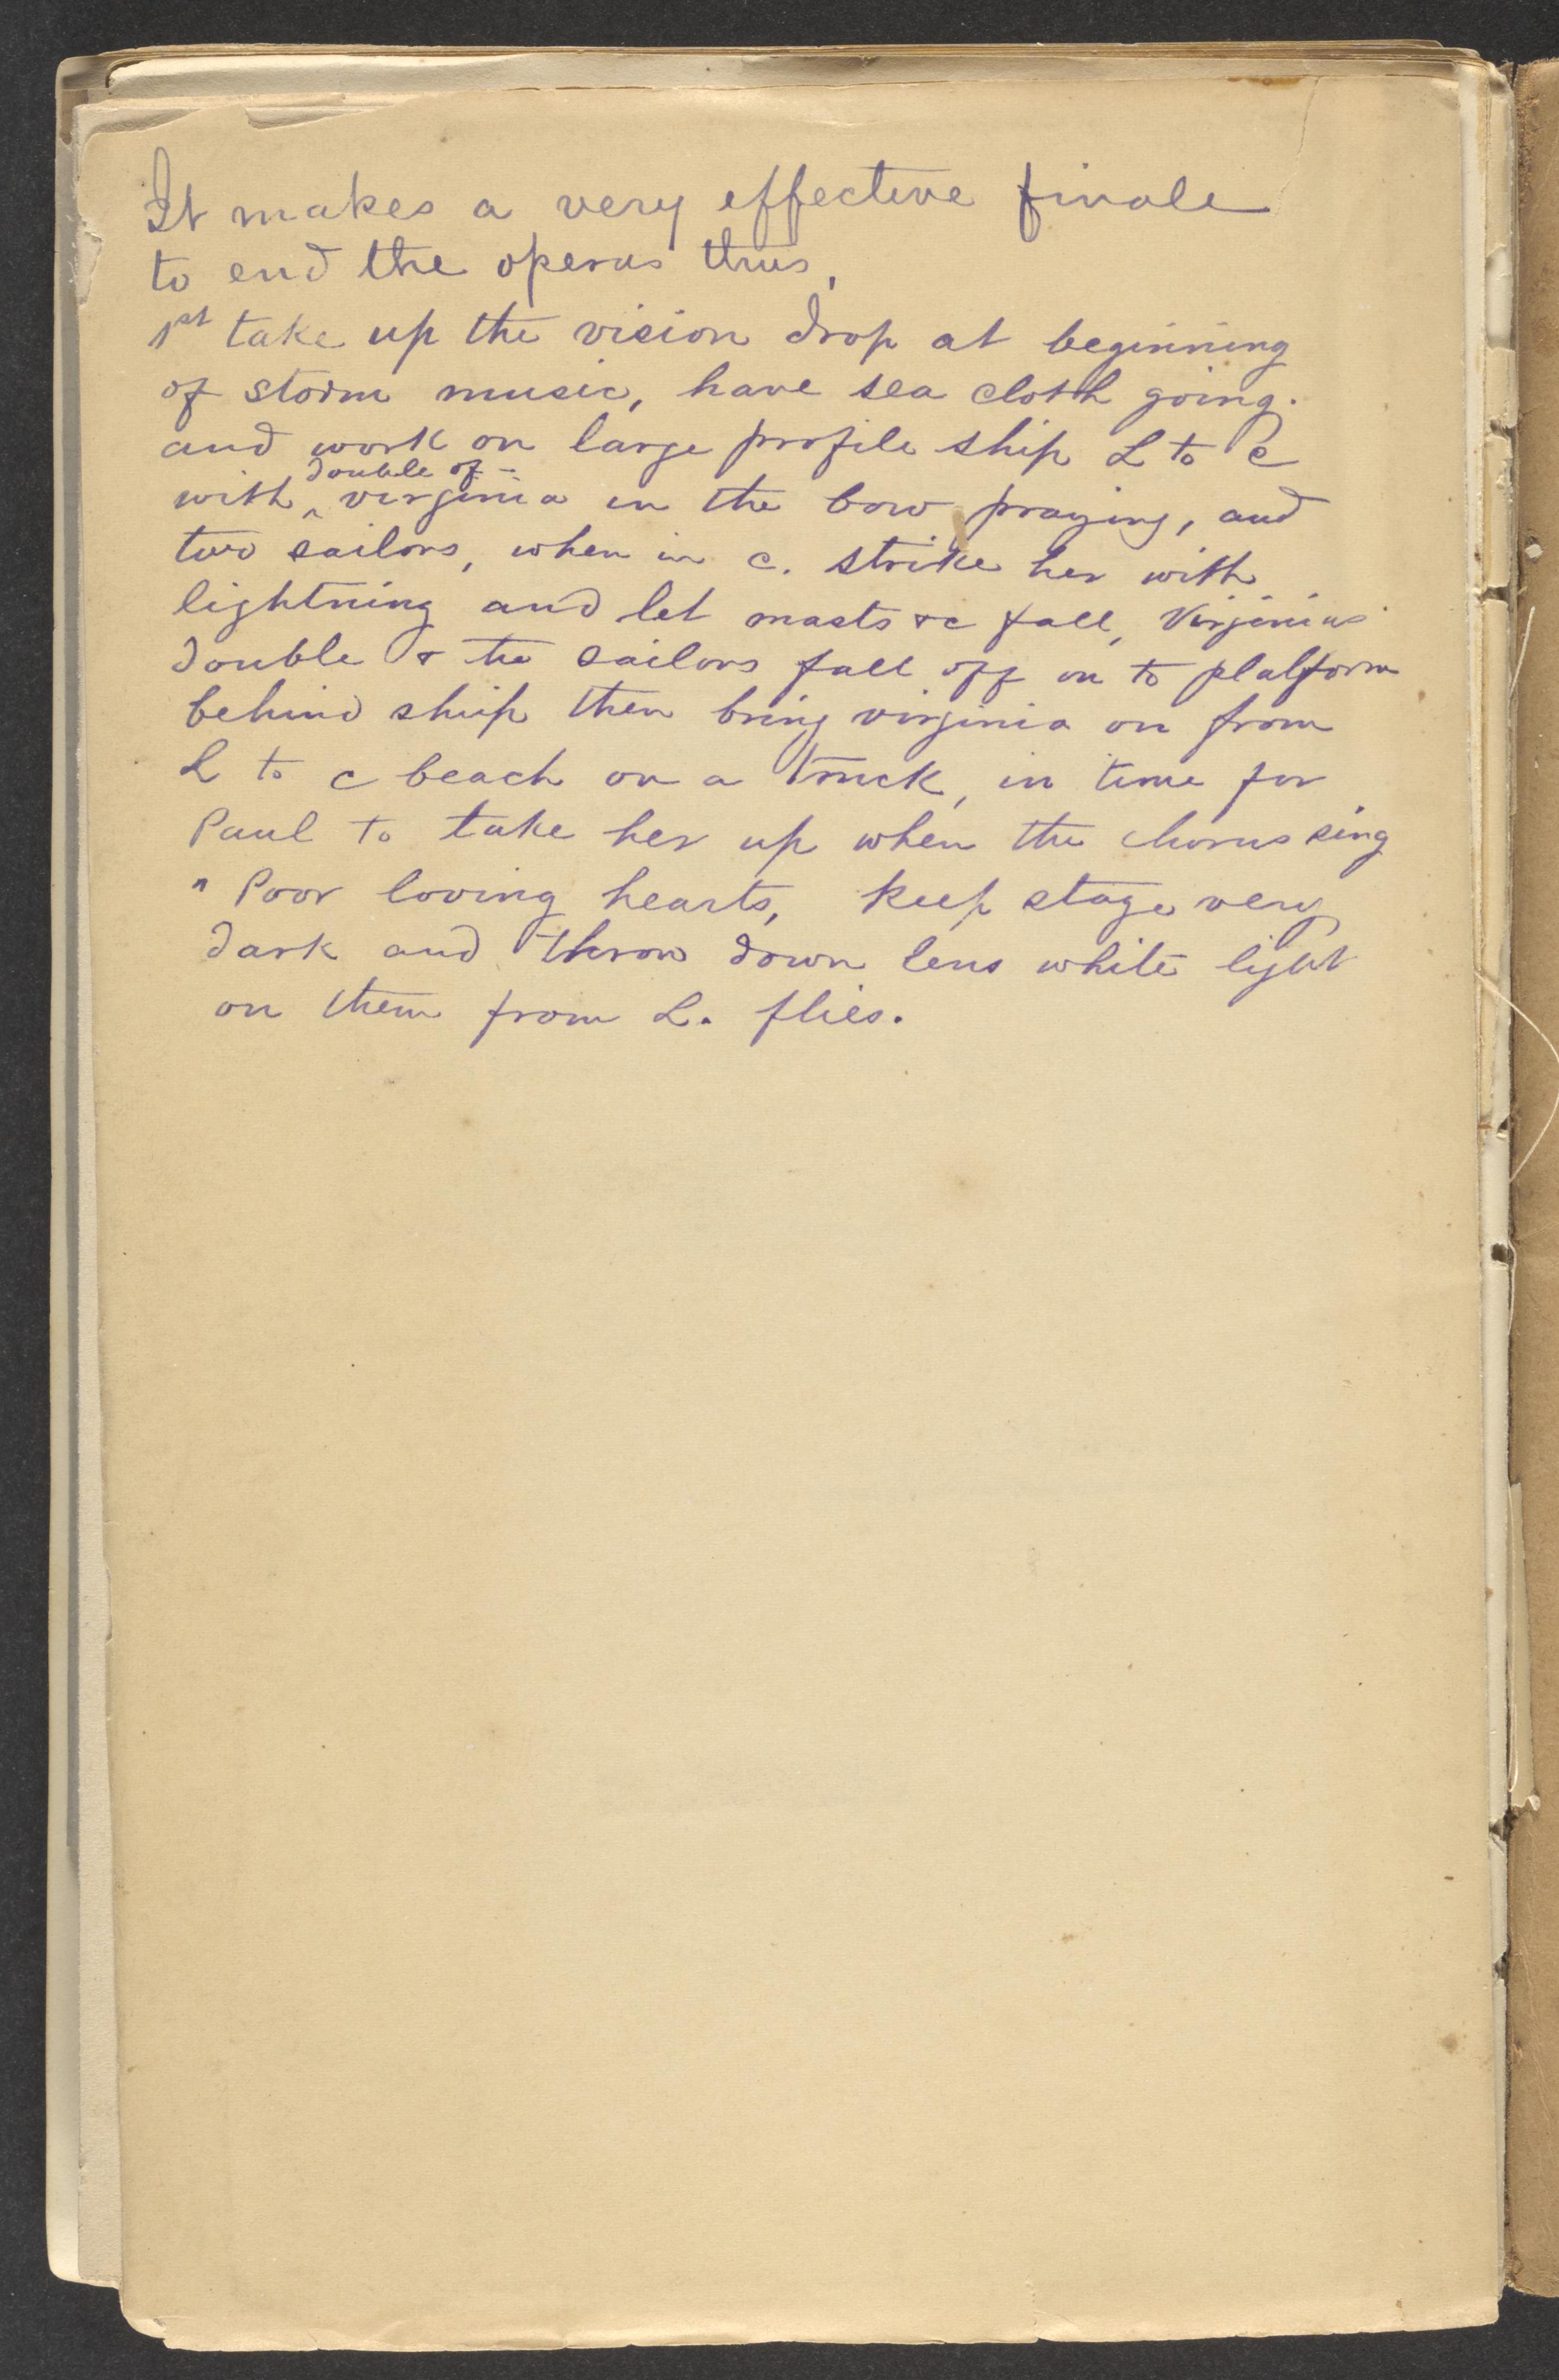 It makes a very effective finale
to end the operas thus,
1st take up the vision drop at beginning
of storm music, have sea cloth going.
and work on large profile ship L to c
double of -
with ‸ virginia in the bow praying, and
two sailors, when in c. strike her with
lightning and let masts &c fall, Virginias
double & the sailors fall off on to platform
behind ship then bring virginia on from
L to c beach on a truck, in time for
Paul to take her up when the chorus sing
" Poor loving hearts, keep stage very
dark and throw down lens white light
on them from L. flies.